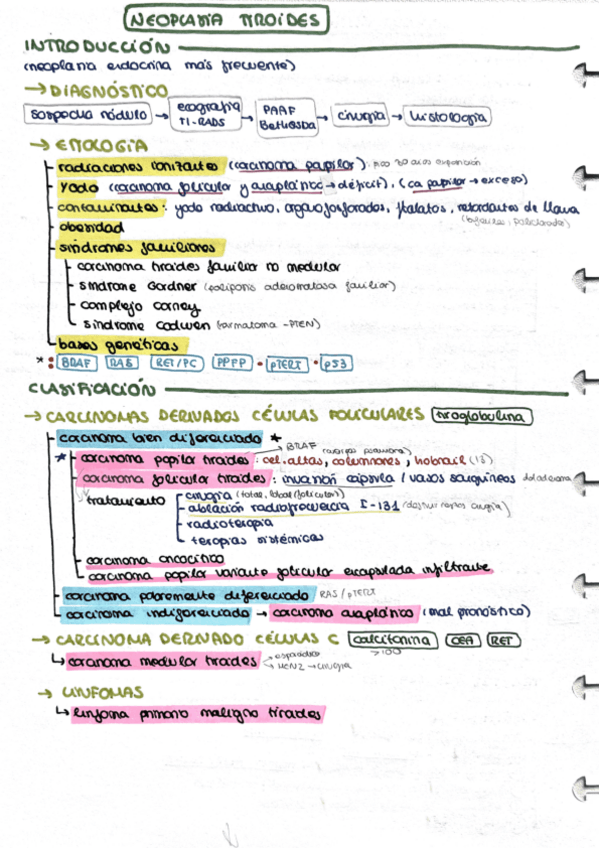 NEOPLASIA TIROIDES
INTRODUCCIÓN
(neoplasia endocrina más frecuente)
→ DIAGNÓSTICO
sospecha nódulo → ecografía TI-RADS → PAAF BETHESDA → cirugía → histología
→ ETIOLOGÍA
radiaciones ionizantes (carcinoma papilar): pico 30 años exposición
yodo (carcinoma folicular y anaplánico → déficit), (ca papilar → exceso)
contaminantes: yodo radiactivo, organofosforados, ftalatos, retardantes de llama
obesidad
síndromes familiares
carcinoma tiroides familiar no medular
síndrome Gardner (poliposis adenomatosa familiar)
complejo carney
síndrome Codwen (armatoma - PTEN)
bases genéticas
* : BRAF RAS RET/PC PPFP • pTERT • p53
CLASIFICACIÓN
→ CARCINOMAS DERIVADOS CÉLULAS FOLICULARES tiroglobulina
carcinoma bien diferenciado *
BRAF (cuerpos psamoma)
* carcinoma papilar tiroides: cel. altas, columnares, hobnail
carcinoma folicular tiroides: invasión cápsula / vasos sanguíneos
tratamiento
cirugía (total, lobar (folicular))
ablación radiofrecuencia I-131 (destruir restos cirugía)
radioterapia
terapias sistémicas
carcinoma oncocítico
carcinoma papilar variante folicular encapsulada infiltrante
carcinoma pobremente diferenciado RAS / pTERT
carcinoma indiferenciado → carcinoma anaplánico (mal pronóstico)
→ CARCINOMA DERIVADO CÉLULAS C calcitonina CEA RET
>100
↳ carcinoma medular tiroides → esporádico
→ MEN2 → cirugía
→ LINFOMAS
↳ linfoma primario maligno tiroides